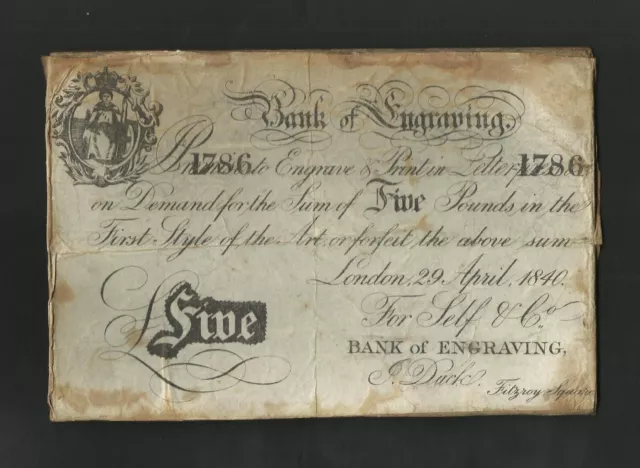 Bank of Engraving.
1786 to Engrave & Print in 1786
on Demand for the Sum of Five Pounds in the
First Style of the Art, or forfeit the above sum
London, 29 April, 1840.
£Five
For Self & Co.
BANK of ENGRAVING,
Fitzroy Square